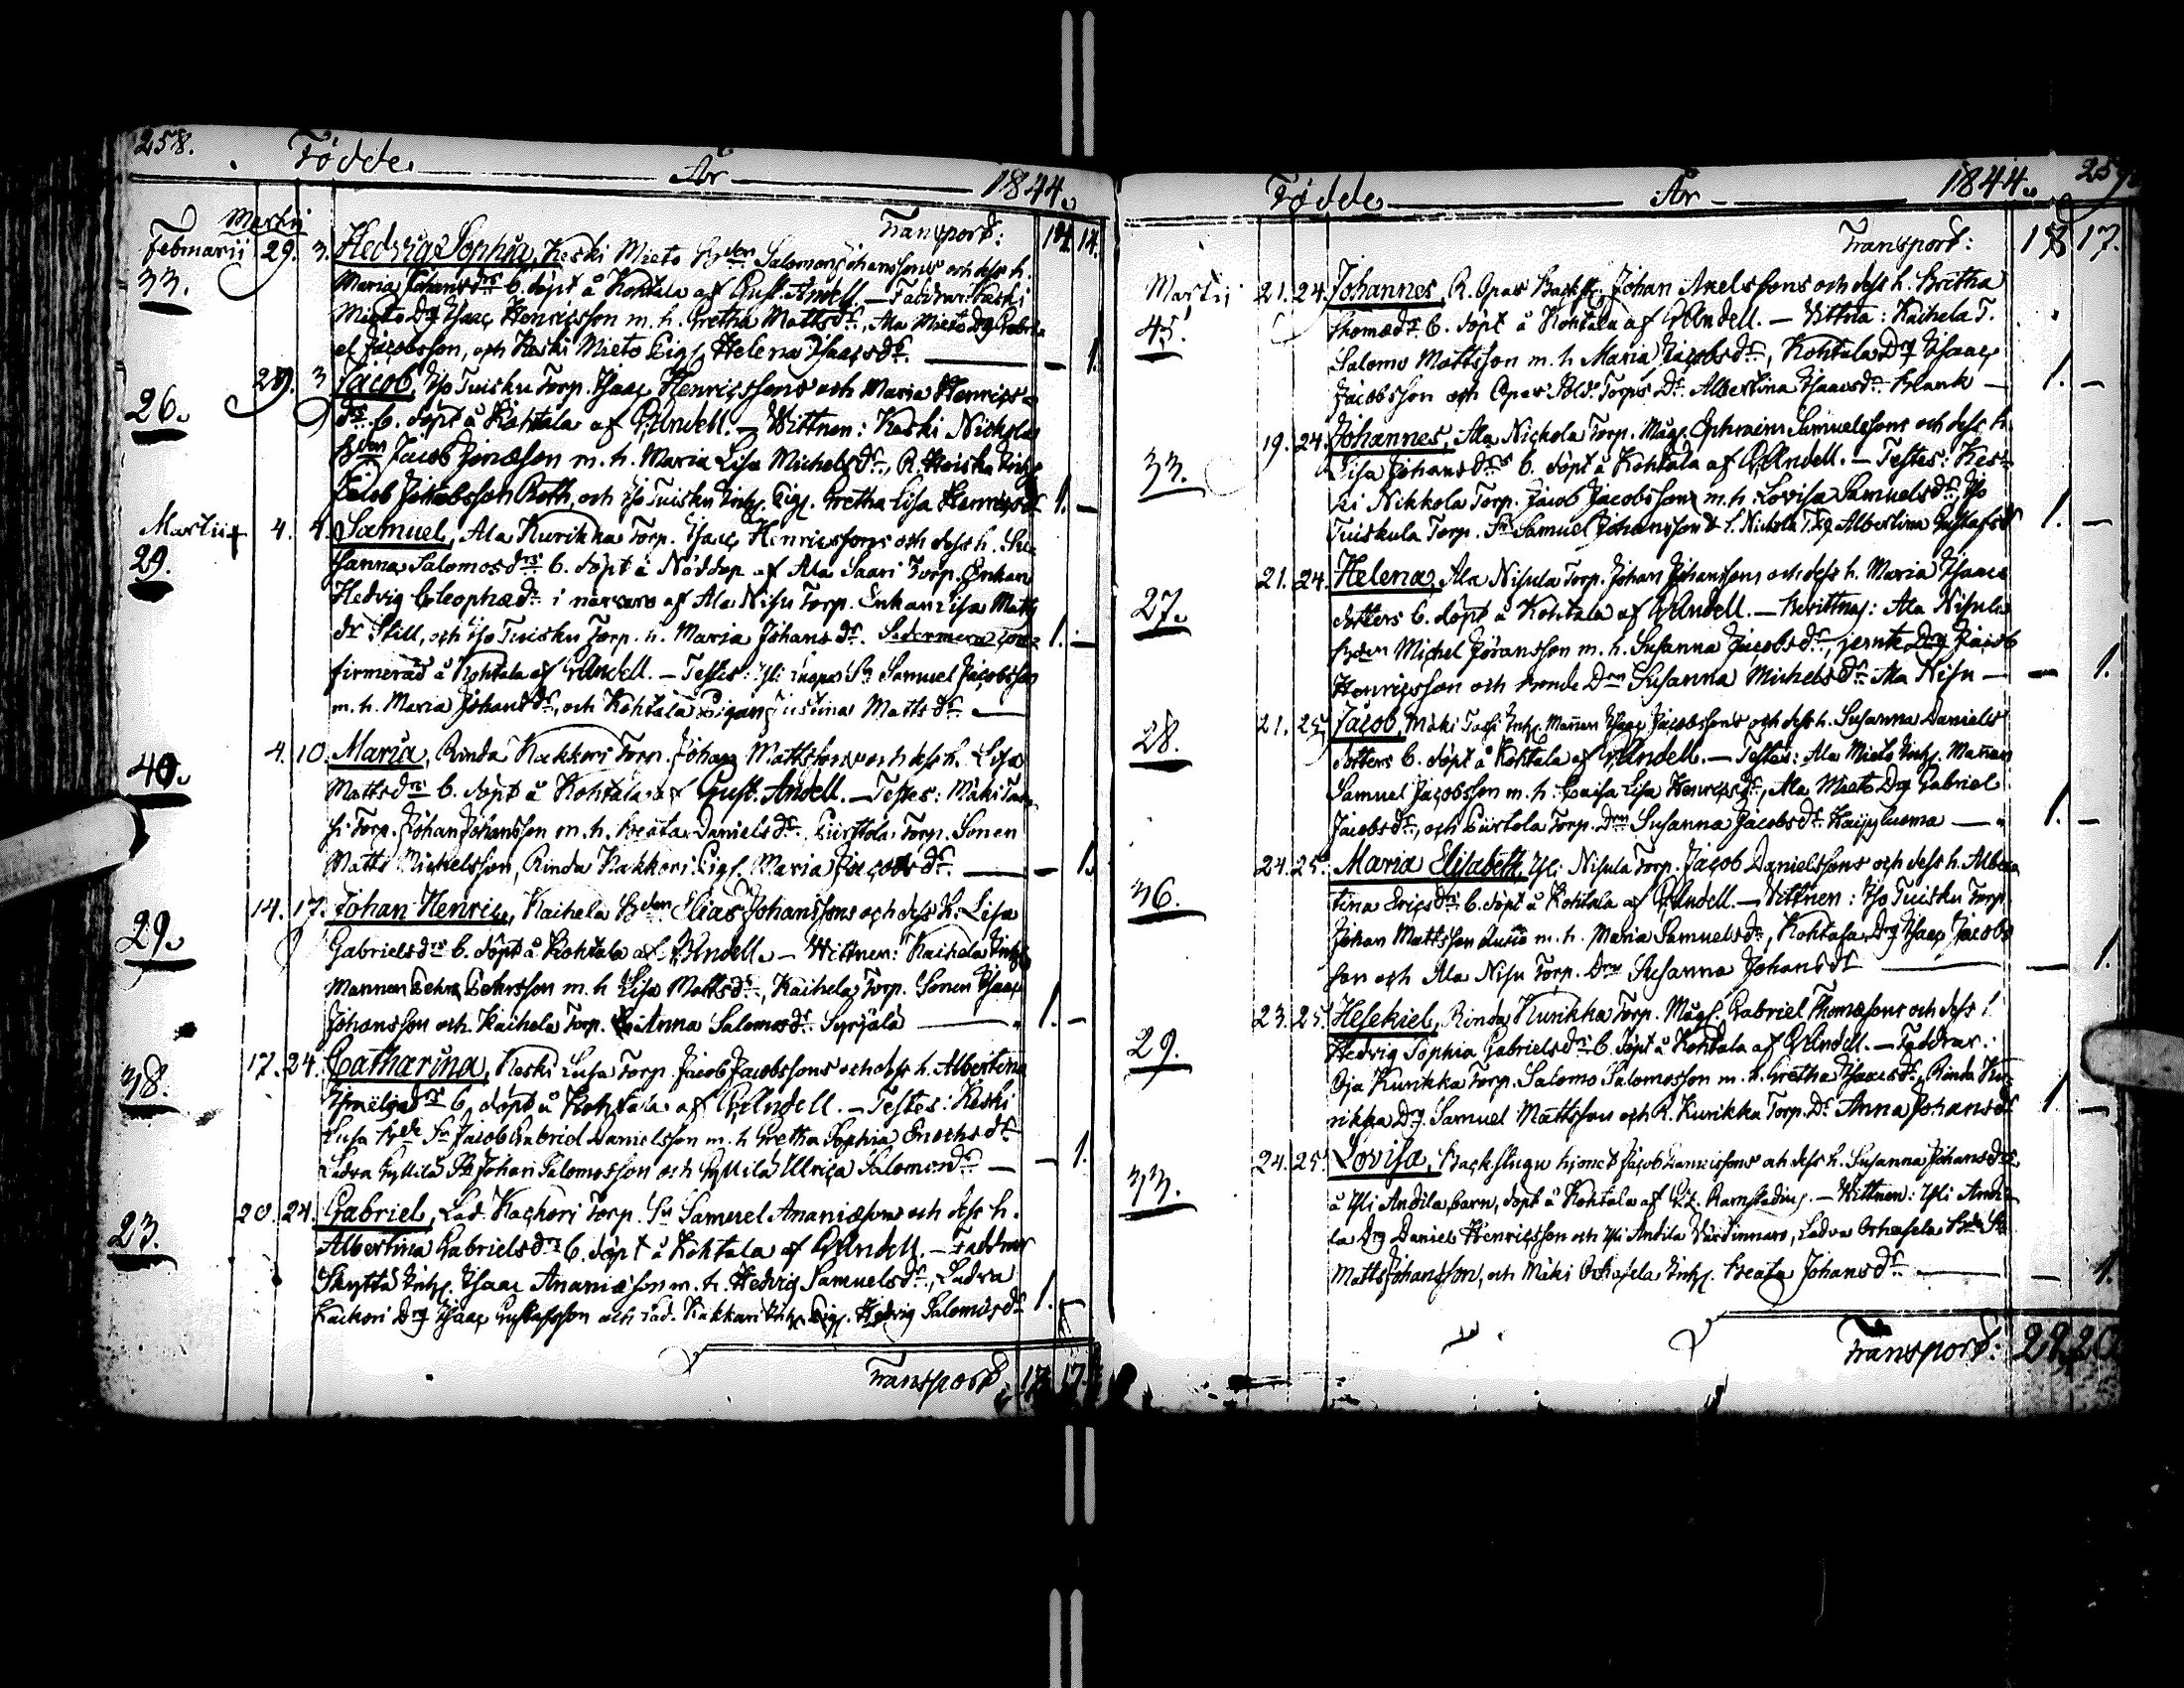 258.
Födde År 1844.
Martii Transport: 14. 14.
Februarii 29. 3. Hedvig Sophia, Keski Mieto Bden Salomon Johanssons och dess h.
33. Maria Johansdrs b. döpt å Kohtala af Gust. Andell. — Faddrar: Keski
Mieto Dg Isaac Henricsson m. h. Gretha Mattsdr, Ala Mieto Dg Gabri-
el Jacobsson, och Keski Mieto Pig. Helena Isaacsdr. — — 1.
29. 3 Jacob, Iso Tuisku Torp. Isaac Henricssons och Maria Henrics-
26. drs b. döpt å Kohtala af G. Andell. — Wittnen: Keski Nickola
Bden Jacob Jonæson m. h. Maria Lisa Michelsdr, R. Heiska Inhs
Jacob Jacobsson Roth, och Iso Tuisku Inhs. Pig. Gretha Lisa Henricsdr 1. —
Martii 4. 4. Samuel, Ala Kurikka Torp. Isaac Henricssons och dess h. Su-
29. sanna Salomosdrs b. döpt i Nöddop af Ala Saari Torp. Enkan
Hedvig Cleophædr i närvaro af Ala Nisu Torp. Enkan Lisa Matts
dr Still, och Iso Tuisku Torp. h. Maria Johansdr. Sedermera con- 1. —
firmerad å Kohtala af G. Andell. — Testes: Yli Luopa Sn Samuel Jacobsson
m. h. Maria Johansdr, och Kohtala Pigan Justina Mattsdr. —
4. 10. Maria, Rinda Kackori Torp. Johan Mattssons och dess h. Lisa
40. Mattsdrs b. döpt å Kohtala af Gust. Andell. — Testes: Mäki Tas-
si Torp. Johan Johansson m. h. Beata Danielsdr, Piirtola Torp. Sonen
Matts Michelsson, Rinda Kakkori Pigs. Maria Jacobsdr. — — 1.
14. 17. Johan Henric, Kaihela Bden Elias Johanssons och dess h. Lisa
29. Gabrielsdrs b. döpt å Kohtala af G. Andell. — Wittnen: Kaihela Inhs
Mannen Pehr Pehrsson m. h Lisa Mattsdr, Kaihela Torp. Sonen Isaac
Johansson och Kaihela Torp. Anna Salomosdr Syrjälä — 1. —
17. 24. Catharina, Keski Lusa Torp. Jacob Jacobssons och dess h. Albertina
38. Ismelsdrs b. döpt å Kohtala af G. Andell. — Testes: Keski
Lusa Bde Sn Jacob Gabriel Danielsson m. h Gretha Sophia Enochsdr
Ladva Gyllilä Sn Johan Salomosson och Gyllilä Ulrica Salomosdr — — 1.
20. 24. Gabriel, Lad. Kackori Torp. Sn Samuel Ananiæsons och dess h.
23. Albertina Gabrielsdrs b. döpt å Kohtala af G. Andell. — Faddrar
Skyttä Inhs. Isaac Ananiæson m. h. Hedvig Samuelsdr, Ladva
Kackori Dg Isaac Gustafsson och Lad. Kakkari Inhs Pigs. Hedvig Salomosdr 1. —
Transport 17. 17.
259
Födde År 1844.
Transport: 18 17.
Martii 21. 24. Johannes, R. Opas Backst. Johan Axelssons och dess h. Britha
45. Thomædrs b. döpt å Kohtala af G. Andell. — Vittna: Kaihela T.
Salomo Mattsson m. h Maria Jacobsdr, Kohtala Dg Isaac
Jacobsson och Opas Sold. Torps Dr Albertina Isaacsdr Blank — 1. —
19. 24. Johannes, Ala Nickola Torp. Mågs. Ephraim Samuelssons och dess h.
33. Lisa Johansdrs b. döpt å Kohtala af G. Andell. — Testes: Kes-
ki Nikkola Torp. Jacob Jacobsson m. h. Lovisa Samuelsdr, Iso
Tuiskula Torp. Sn Samuel Johansson & Albertina Gustafsdr 1. —
21. 24. Helena, Ala Nisula Torp. Johan Johanssons och dess h. Maria Isaacs
27. dotters b. döpt å Kohtala af G. Andell. — Bevittnas: Ala Nisula
Bden Michel Göransson m. h. Susanna Jacobsdr, jemte Dg Jacob
Henricsson och Bonde Drn Susanna Michelsdr Ala Nisu — — 1.
21. 25. Jacob, Mäki Tassi Inhs. Mannen Isaac Jacobssons och dess h. Susanna Daniels
28. dotters b. döpt å Kohtala af G. Andell. — Testes: Ala Mieto Inhs. Mannen
Samuel Jacobsson m. h. Caisa Lisa Henricsdr, Ala Mieto Dg Gabriel
Jacobsdr, och Piirtola Torp. Drn Susanna Jacobsdr Kaipiluoma — 1. —
24. 25. Maria Elisabeth, Yli Nisula Torp. Jacob Danielssons och dess h. Alber-
36. tina Ericsdrs b. döpt å Kohtala af G. Andell. — Vittnen: Iso Tuisku Torp.
Johan Mattsson m. h. Maria Samuelsdr, Kohtala Dg Isaac Jacobs
son och Ala Nisu Torp. Drn Susanna Johansdr — — 1.
23. 25. Hesekiel, Rinda Kurikka Torp. Mågs. Gabriel Thomæsons och dess h
29. Hedvig Sophia Gabrielsdrs b. döpt å Kohtala af G. Andell. — Faddrar:
Oja Kurikka Torp. Salomo Salomosson m. h. Gretha Isaacsdr, Rinda Ku-
rikka Dg Samuel Mattsson och R. Kurikka Torp. Dr Anna Johansdr 1 —
24. 25. Lovisa, Backstugu hjonet Jacob Danielssons och dess h. Susanna Johansdrs
33. å Yli Andila barn, döpt å Kohtala af — Wittnen: Yli Andi-
la Dg Daniel Henricsson och Yli Andila Värdinnan, Ladva Orhasela Bde Sn
Matts Johansson, och Mäki Orhasela Inhs. Beata Johansdr — — 1.
Transport: 22 20